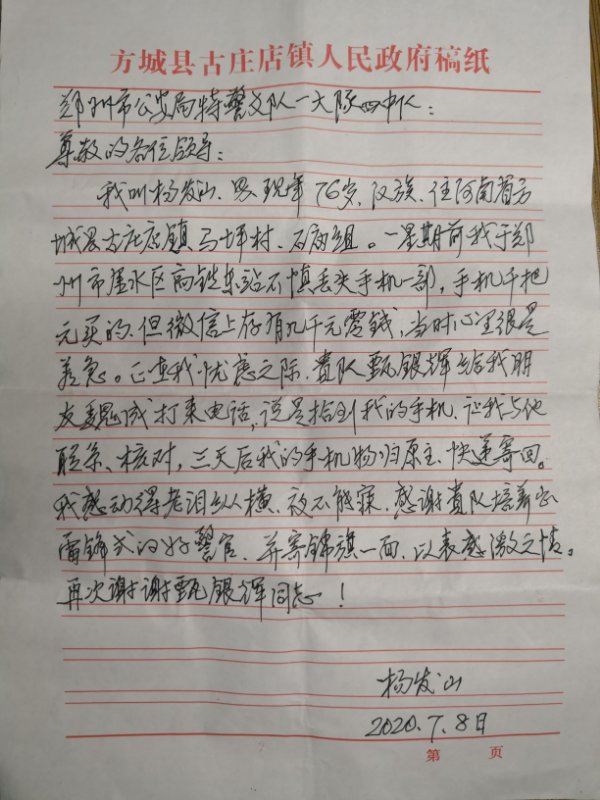 方城县古庄店镇人民政府稿纸
郑州市公安局特警支队一大队四中队：
尊敬的各位领导：
我叫杨发山、男、现年76岁、汉族、住河南省方
城县古庄店镇马坪村、石岗组。一星期前我于郑
州市金水区高铁东站不慎丢失手机一部，手机千把
元买的、但微信上存有九千元零钱，当时心里很是
着急。正在我忧虑之际、贵队甄银辉给我朋
友魏成打来电话，说是拾到我的手机、让我与他
联系、核对，三天后我的手机物归原主、快递寄回。
我感动得老泪纵横、夜不能寐、感谢贵队培养出
雷锋式的好警官、并寄锦旗一面、以表感激之情。
再次谢谢甄银辉同志！
杨发山
2020.7.8日
第 页